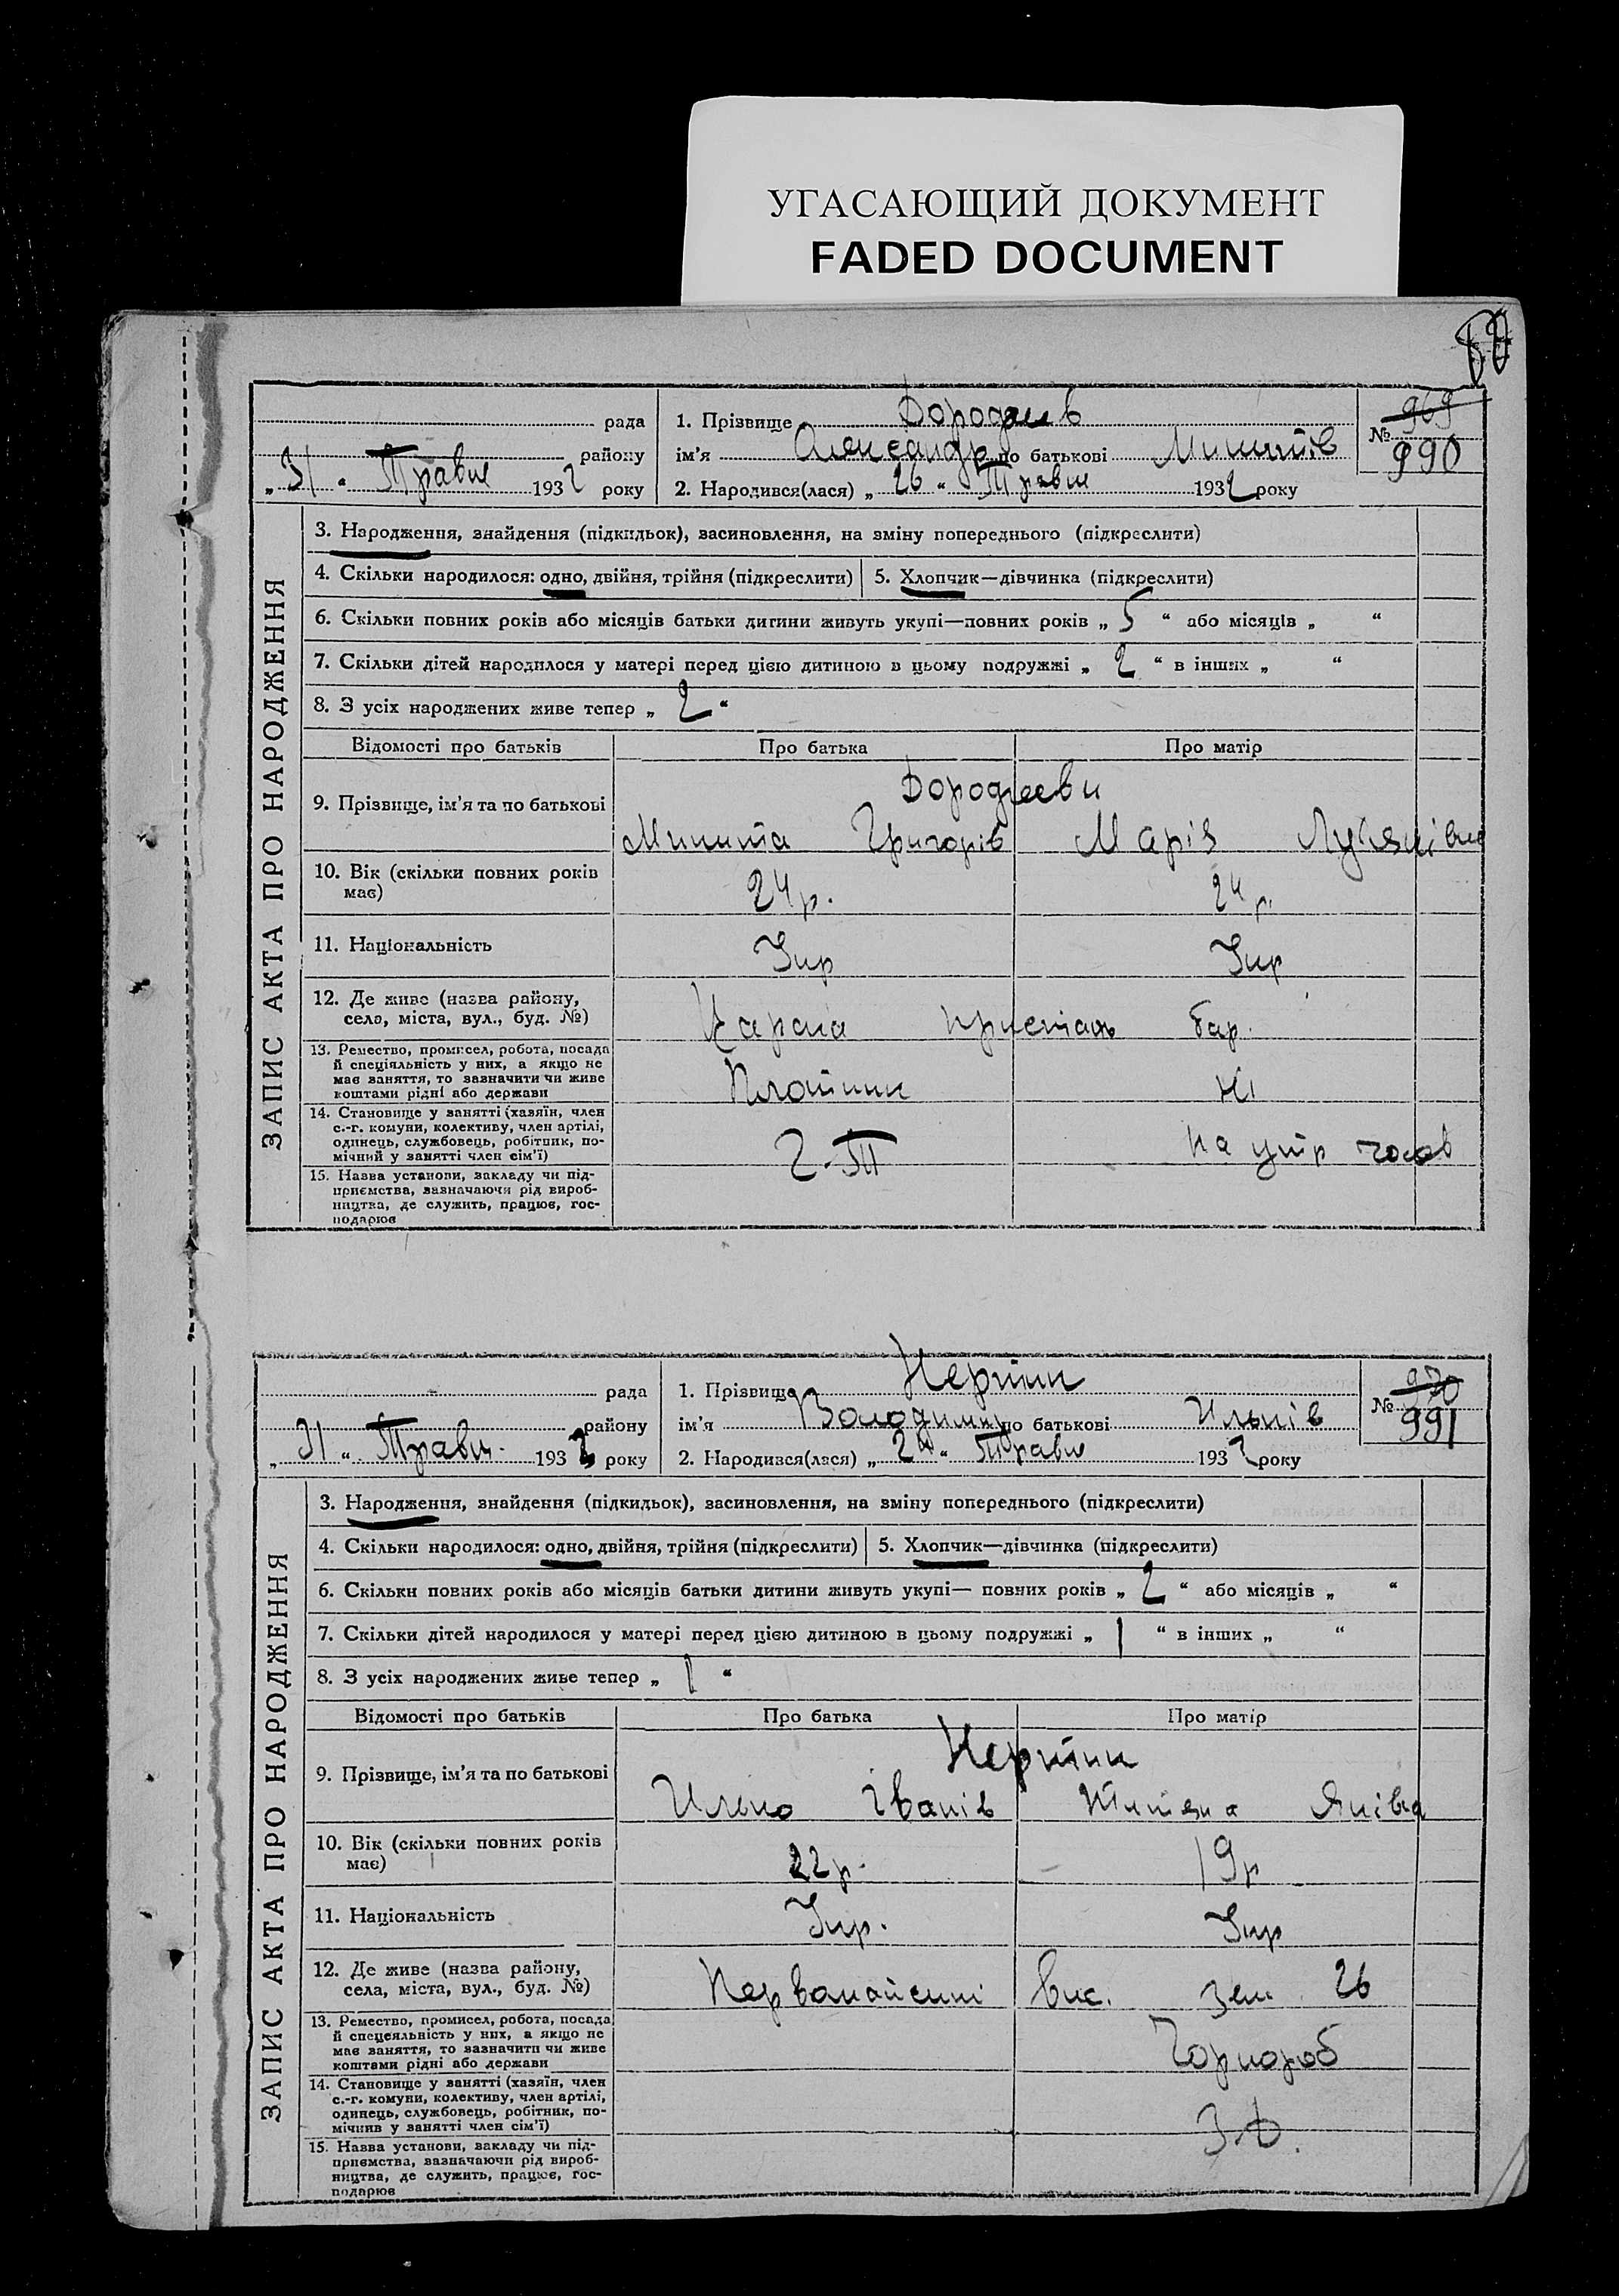 УГАСАЮЩИЙ ДОКУМЕНТ
FADED DOCUMENT
рада
району
„ 31 “ Травня 1932 року
1. Прізвище
ім’я Олександр по батькові Микитів
2. Народився(лася) „ 26 “ Травня 1932 року
№ 969
990
ЗАПИС АКТА ПРО НАРОДЖЕННЯ
3. Народження, знайдення (підкидьок), засиновлення, на зміну попереднього (підкреслити)
4. Скільки народилося: одно, двійня, трійня (підкреслити)
5. Хлопчик—дівчинка (підкреслити)
6. Скільки повних років або місяців батьки дитини живуть укупі—повних років „ 5 “ або місяців „ “
7. Скільки дітей народилося у матері перед цією дитиною в цьому подружжі „ 2 “ в інших „ “
8. З усіх народжених живе тепер „ 2 “
Відомості про батьків
Про батька
Про матір
9. Прізвище, ім’я та по батькові
Микита Григорів
Марія
10. Вік (скільки повних років
має)
24 р.
24 р.
11. Національність
Укр
Укр
12. Де живе (назва району,
села, міста, вул., буд. №)
пристань бар.
13. Ремество, промисел, робота, посада
й спеціяльність у них, а якщо не
має заняття, то зазначити чи живе
коштами рідні або держави
Плотник
Ні
14. Становище у занятті (хазяїн, член
с.-г. комуни, колективу, член артілі,
одинець, службовець, робітник, по-
мічний у занятті член сім’ї)
На утр
15. Назва установи, закладу чи під-
приємства, зазначаючи рід вироб-
ництва, де служить, працює, гос-
подарює
рада
району
„ 31 “ Травн. 1932 року
1. Прізвище
ім’я Володимир по батькові Ильків
2. Народився(лася) „ 24 “ Травня 1932 року
№ 970
991
ЗАПИС АКТА ПРО НАРОДЖЕННЯ
3. Народження, знайдення (підкидьок), засиновлення, на зміну попереднього (підкреслити)
4. Скільки народилося: одно, двійня, трійня (підкреслити)
5. Хлопчик—дівчинка (підкреслити)
6. Скільки повних років або місяців батьки дитини живуть укупі— повних років „ 2 “ або місяців „ “
7. Скільки дітей народилося у матері перед цією дитиною в цьому подружжі „ 1 “ в інших „ “
8. З усіх народжених живе тепер „ 1 “
Відомості про батьків
Про батька
Про матір
9. Прізвище, ім’я та по батькові
Илько Іванів
Яківна
10. Вік (скільки повних років
має)
22 р.
19 р
11. Національність
Укр.
Укр
12. Де живе (назва району,
села, міста, вул., буд. №)
вис. зем 26
13. Ремество, промисел, робота, посада
й спецеяльність у них, а якщо не
має заняття, то зазначити чи живе
коштами рідні або держави
Чорнороб
14. Становище у занятті (хазяїн, член
с.-г. комуни, колективу, член артілі,
одинець, службовець, робітник, по-
мічнив у занятті член сім’ї)
15. Назва установи, вакладу чи під-
приємства, вазначаючи рід вироб-
ництва, де служить, працює, гос-
подарює